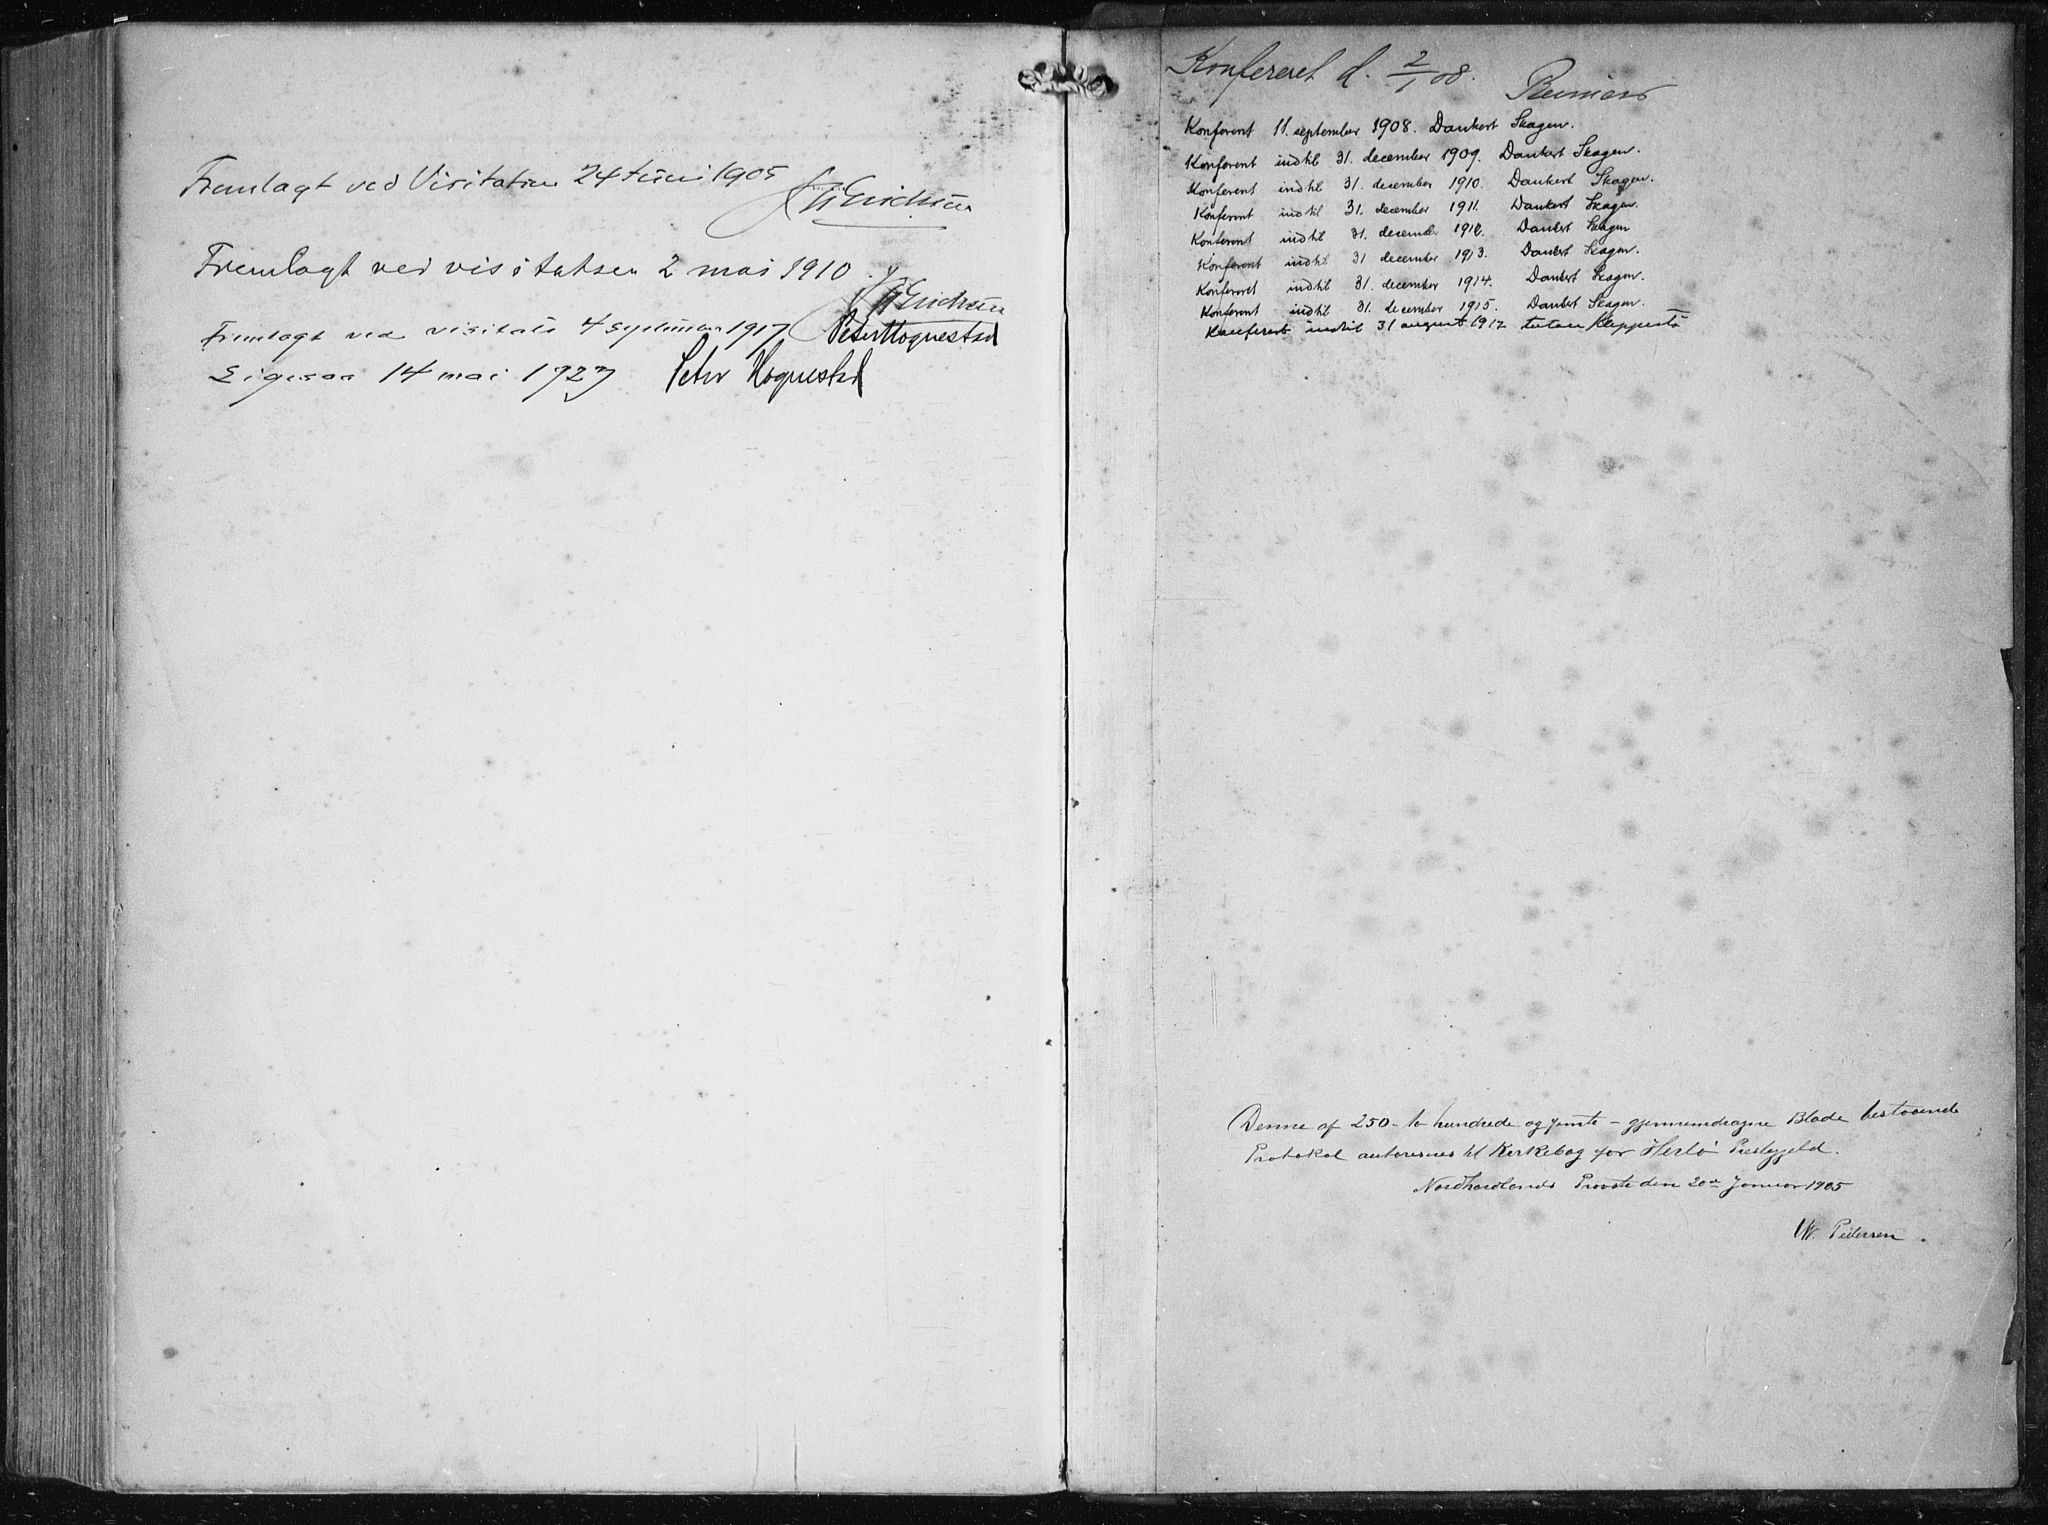 Fremlagt ved Visitatsen 24 Juni 1905
J W Erichsen
Fremlagt ved visitatsen 2 mai 1910.
J W Erichsen
Fremlagt ved visitats 4 September 1917 Peter Hognestad
Ligesaa 14 mai 1927 Peter Hognestad
Konfereret d. 2/1 08.
Konferert 11. september 1908. Dankert Skagen.
Konferert indtil 31. december 1909. Dankert Skagen.
Konferert indtil 31. december 1910. Dankert Skagen.
Konferert indtil 31. december 1911. Dankert Skagen.
Konferert indtil 31. december 1912. Dankert Skagen
Konferert indtil 31 december 1913. Dankert Skagen.
Konfereret indtil 31. december 1914. Dankert Skagen.
Konferert indtil 31. december 1915. Dankert Skagen.
Konferert indtil 31 august 1917 Kleppestø
Denne af 250 - to hundrede og femti - gjennemdragne Blade bestaaende
Protokol autoriseres til Kirkebog for Herlø Præstegjeld.
Nordhordlands Provsti den 20de Januar 1905
W. Pedersen.